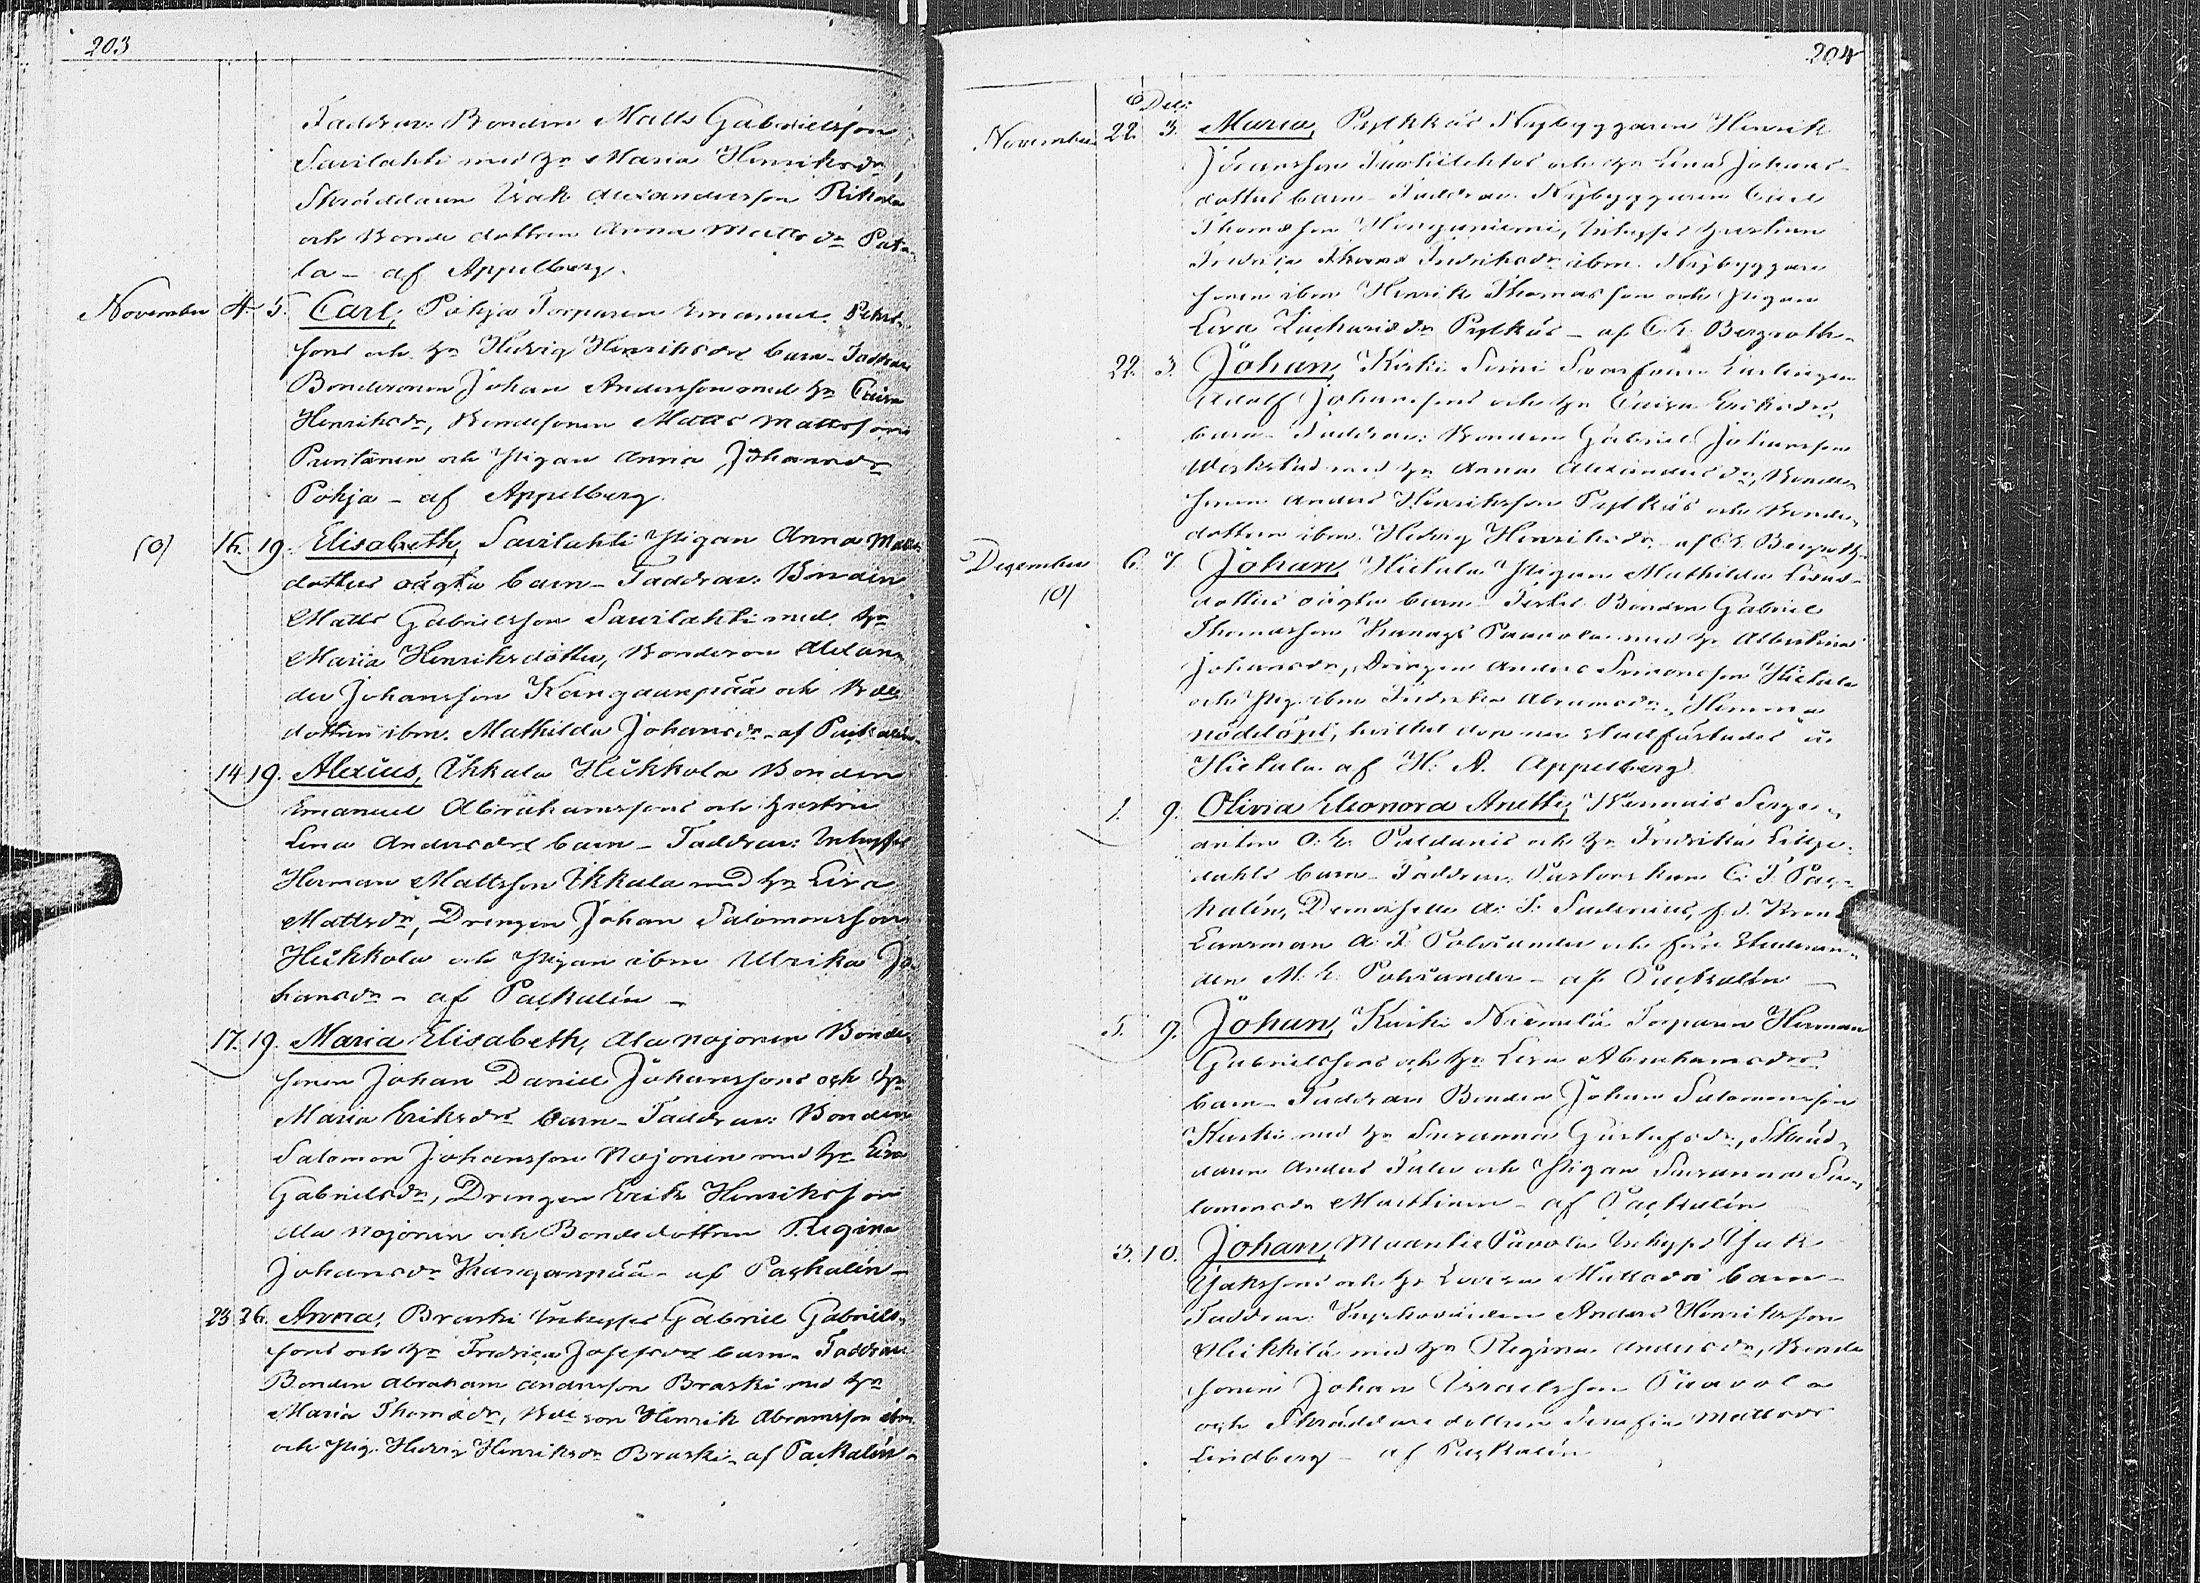 203
Faddrar: Bonden Matts Gabrielsson
Savilahti med hu Maria Henriksdr,
Skräddaren Isak Alexandersson Rikala
och Bonde dottren Anna Mattsdr Pata-
la – af Appelberg.
November 4. 5. Carl, Pohja Torparen Emanuel Pehrs-
sons och hu Hedvig Henriksdrs barn – Faddrar
Bondesonen Johan Andersson med hu Caisa
Henriksdr, Bondesonen Matts Mattsson
och Pigan Anna Johansdr
Pohja – af Appelberg.
(o) 16. 19. Elisabeth, Savilahti Pigan Anna Matts-
dotters oägta barn – Faddrar: Bonden
Matts Gabrielsson Savilahti med hu
Maria Henriksdotter, Bondeson Alexan-
der Johansson Kangaanpää och Bde
dottren ibm. Mathilda Johansdr – af Packalén.
14 19. Alexius, Ikkala Heikkola Bonden
Emanuel Abrahamssons och hustru
Lena Andersdrs barn – Faddrar: Inhyses
Herman Mattsson Ikkala med hu Lisa
Mattsdr, Drengen Johan Salomonsson
Heikkola och Pigan ibm Ulrika Jo-
hansdr – af Packalén –
17. 19. Maria Elisabeth, Ala Nojonen Bonde-
sonen Johan Daniel Johanssons och hu
Maria Eriksdrs barn – Faddrar: Bonden
Salomon Johansson Nojonen med hu Lisa
Gabrielsdr, Drengen Erik Henriksson
Ala Nojonen och Bondedottren Regina
Johansdr Kangaanpää – af Packalén –
23 26. Anna, Braski Inhyses Gabriel Gabriels-
sons och hu Fredrica Josefsdrs barn – Faddrar
Bonden Abraham Andersson Braski med hu
Maria Thomædr, Bde son Henrik Abramsson ibm
och Pig. Hedvig Henriksdr Braski – af Packalén –
204
Dec:
November 22. 3. Maria, Pylkkäs Nybyggaren Henrik
och hu Lena Johans-
dotters barn – Faddrar Nybyggaren Carl
Thomæson Inhyses hustrun
Fredrica Fredriksdr ibm. Nybyggare
sonen ibm Henrik Thomasson och Pigan
Lisa Zachariædr Pylkäs – af C. E. Bergroth.
22. 3. Johan,
Adolf Johanssons och hu Caisa Eriksdrs
barn – Faddrar: Bonden Gabriel Johansson
med hu Anna Alexandersdr, Bonde-
sonen Anders Henriksson Pylkäs och Bonde-
dottren ibm Hedvig Henriksdr – af C. E. Bergroth.
December 6. 7. Johan, Hietala Pigan Mathilda
(o) dotters oägta barn – Bonden Gabriel
Thomasson Paavola med hu Albertina
Johansdr, Drengen Anders Simonsson Hietala
och Pig. ibm Fredrika Abramsdr. Hemma
nöddöpt, hvilket dop nu stadfästades å
Hietala af H. A. Appelberg
1. 9. Olivia Eleonora Anette, Serge-
anten O. E. Paldanis och hu Fredrika Lilje-
dahls barn – Faddrar: Pastorskan C. F. Pac-
kalén, Demoiselle A. S. Sadenius, f. d. Krono
Länsman A. F. Polviander och Studeran-
den M. E. Polviander – af Packalén –
5. 9. Johan, Kurki Niemelä Torparen Herman
Gabrielssons och hu Lisa Abrahamsdrs
barn – Faddrar Bonden Johan Salomonsson
Kurki med hu Susanna Gustafsdr, Skräd-
daren Anders och Pigan Susanna Sa-
lomonsdr – af Packalén
3. 10. Johan, Maantie Pavola Inhyses Isak
Isakssons och hu Lovisa Mattsdrs barn –
Faddrar: Kyrkovärden Anders Henriksson
Heikkilä med hu Regina Andersdr, Bonde
sonen Johan Israelsson Paavola
och Skräddare dottren Serafia Mattsdr
Lindberg – af Packalén